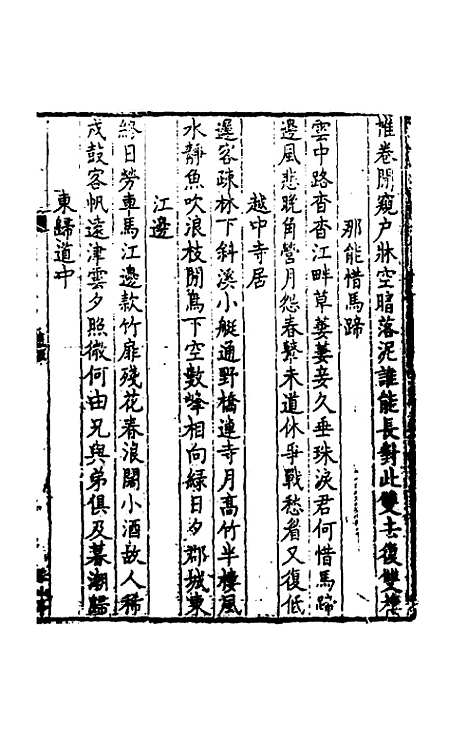 惟卷開窺户牀空暗落泥誰能長對此雙去復雙棲
那能惜馬蹄
雲中路杳杳江畔草萋萋妾久垂珠淚君何惜馬蹄
邊風悲曉角營月怨春鼙未道休爭戰愁眉又復低
越中寺居
遲客疎林下斜溪小艇通野橋連寺月高竹半樓風
水靜魚吹浪枝閒鳥下空數峰相向緑日夕郡城東
江邊
終日勞車馬江邊款竹扉殘花春浪闊小酒故人稀
戍鼓客帆遠津雲夕照微何由兄與弟俱及暮潮歸
東歸道中